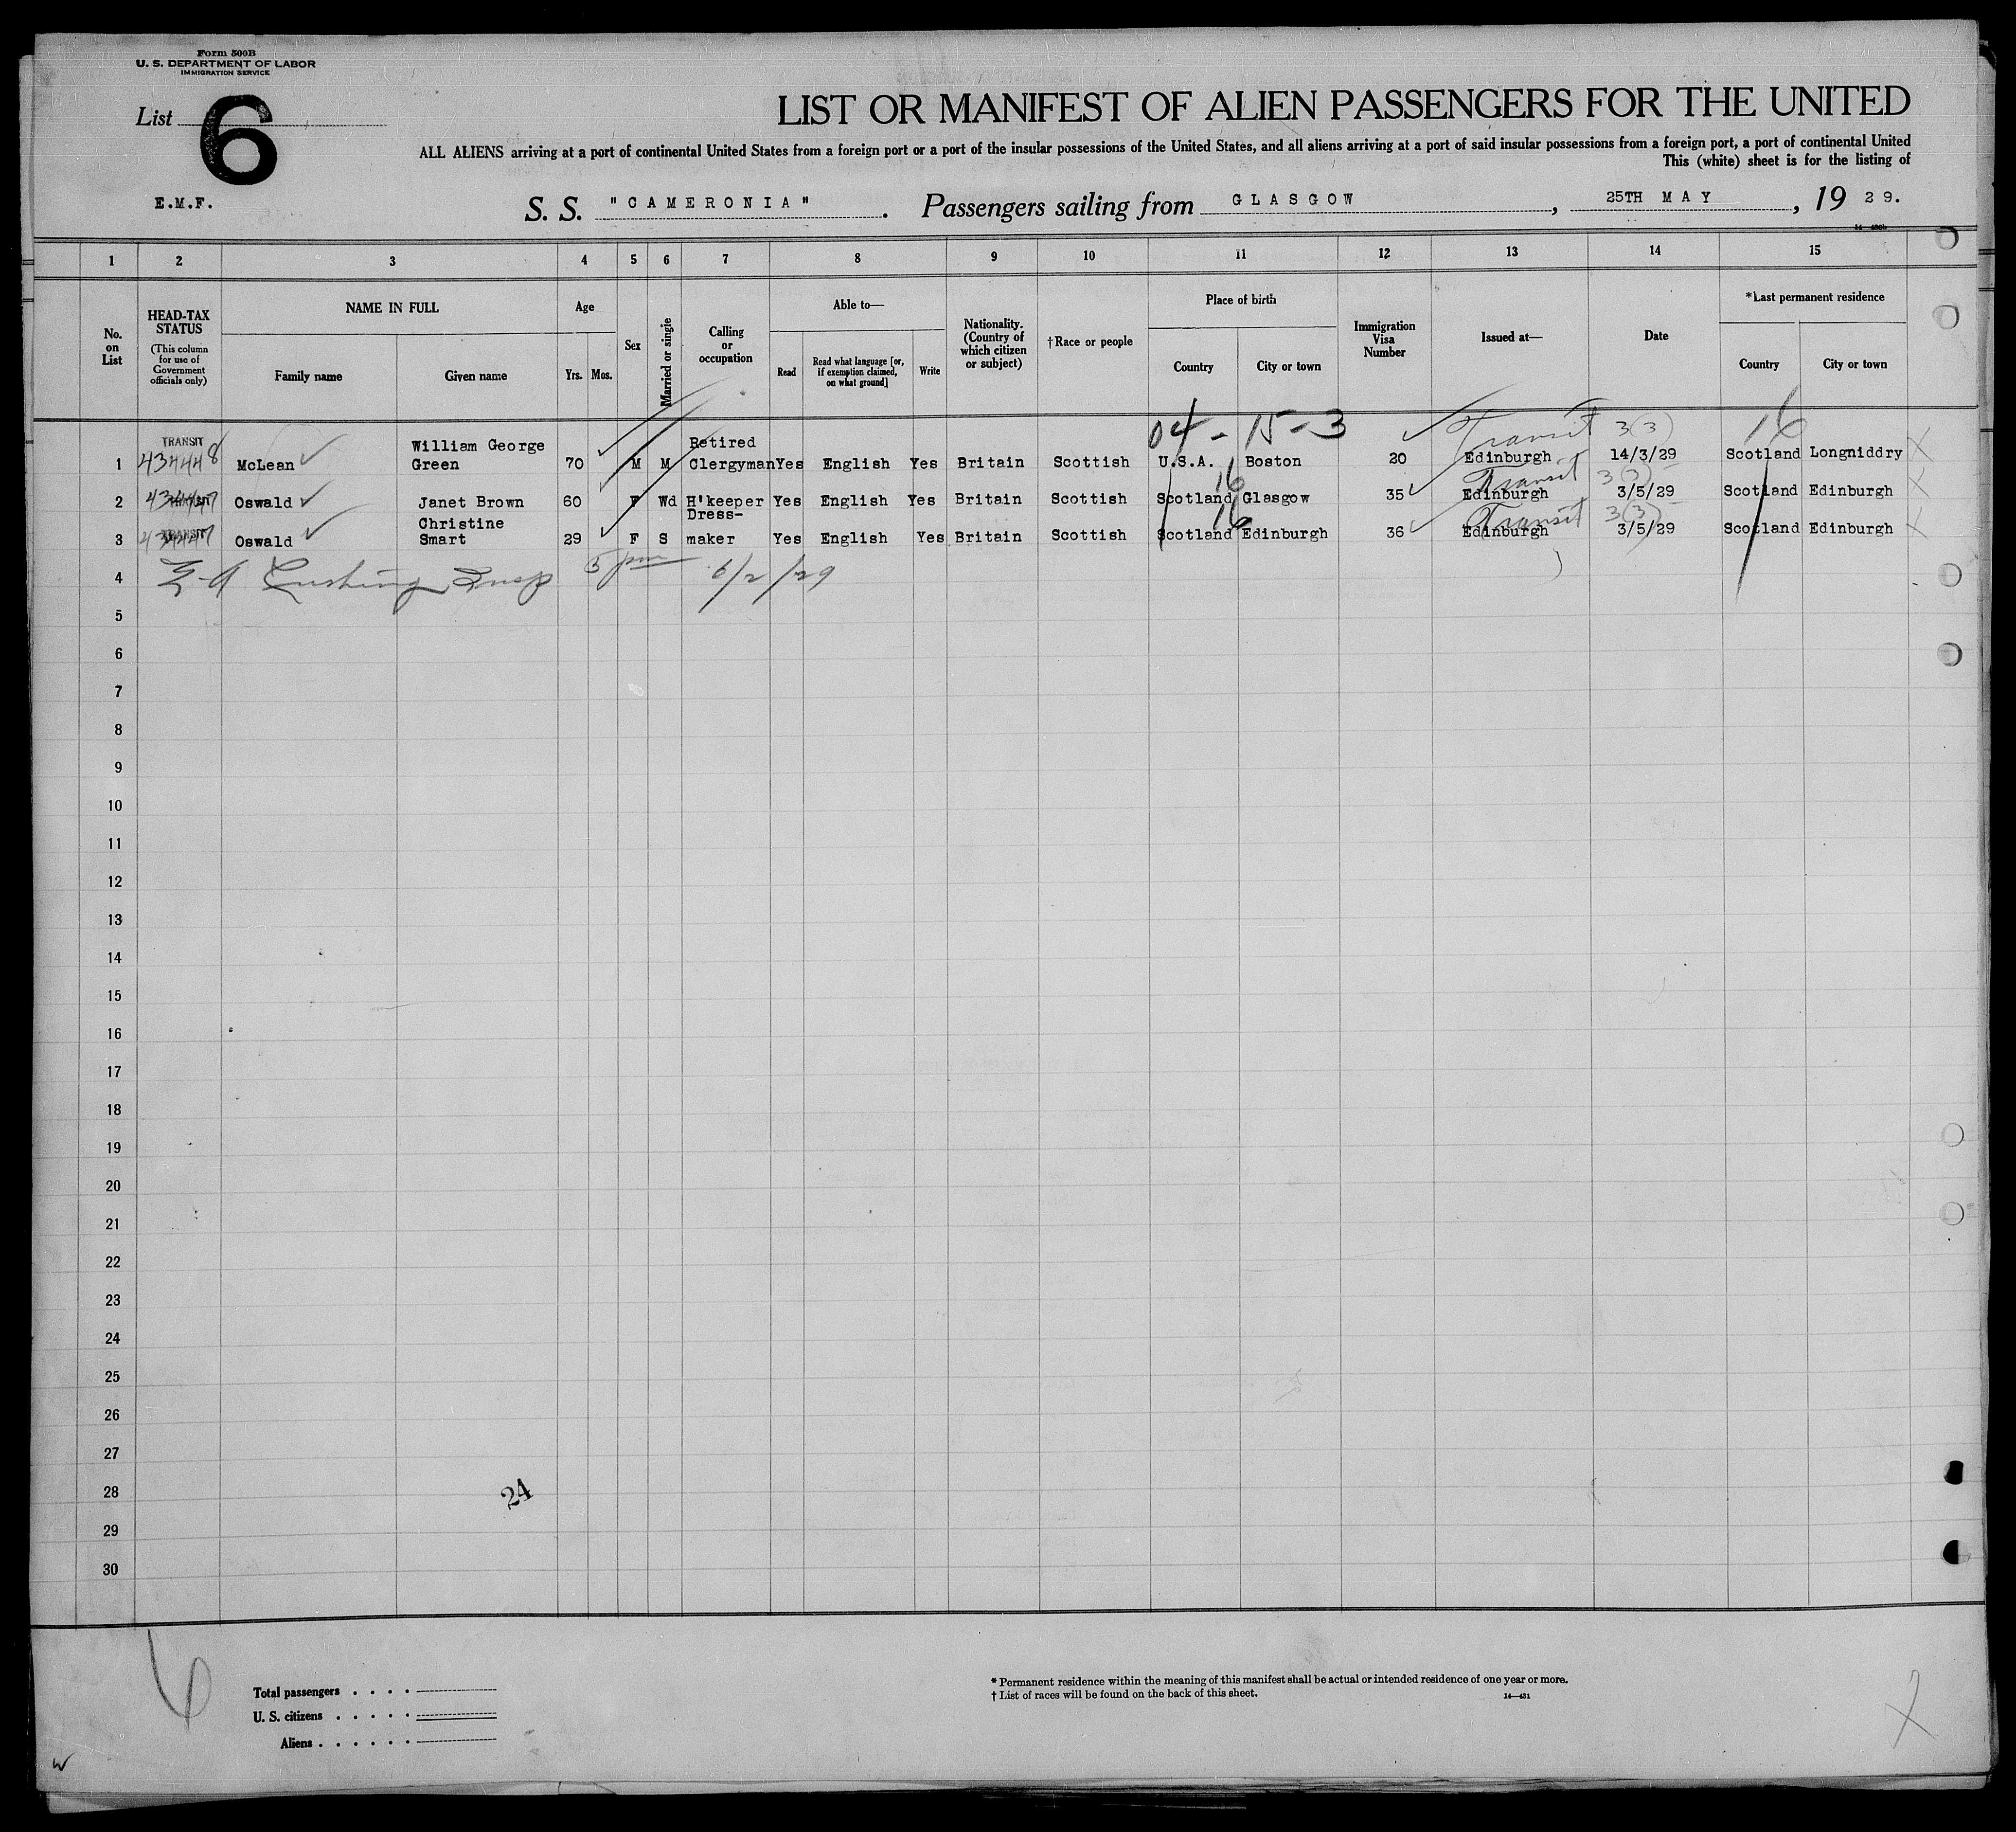 Form 500B
U. S. DEPARTMENT OF LABOR
IMMIGRATION SERVICE
List 6
LIST OR MANIFEST OF ALIEN PASSENGERS FOR THE UNITED
ALL ALIENS arriving at a port of continental United States from a foreign port or a port of the insular possessions of the United States, and all aliens arriving at a port of said insular possessions from a foreign port, a port of continental United
This (white) sheet is for the listing of
E.M.F.
S. S. "CAMERONIA". Passengers sailing from GLASGOW, 25TH MAY, 19 29.
1 2 3 4 5 6 7 8 9 10 11 12 13 14 15
No. on List
HEAD-TAX STATUS
(This column for use of Government officials only)
NAME IN FULL
Family name Given name
Age
Yrs. Mos.
Sex
Married or single
Calling or occupation
Able to—
Read
Read what language [or, if exemption claimed, on what ground]
Write
Nationality. (Country of which citizen or subject)
†Race or people
Place of birth
Country City or town
Immigration Visa Number
Issued at—
Date
*Last permanent residence
Country City or town
04 - 15-3 Transit 3(3) 16
TRANSIT William George Retired
1 434448 McLean Green 70 M M Clergyman Yes English Yes Britain Scottish U.S.A. Boston 20 Edinburgh 14/3/29 Scotland Longniddry X
16 Transit 3(3)
2 TRANSIT Oswald Janet Brown 60 F Wd H'keeper Yes English Yes Britain Scottish Scotland Glasgow 35 Edinburgh 3/5/29 Scotland Edinburgh X
Christine Dress- 16 Transit 3(3)
3 TRANSIT Oswald Smart 29 F S maker Yes English Yes Britain Scottish Scotland Edinburgh 36 Edinburgh 3/5/29 Scotland Edinburgh X
4 Cushing Insp 5 pm 6/2/29
5
6
7
8
9
10
11
12
13
14
15
16
17
18
19
20
21
22
23
24
25
26
27
28
24
29
30
6
Total passengers . . . .
U. S. citizens . . . . .
Aliens . . . . . .
* Permanent residence within the meaning of this manifest shall be actual or intended residence of one year or more.
† List of races will be found on the back of this sheet.
14—431
X
W